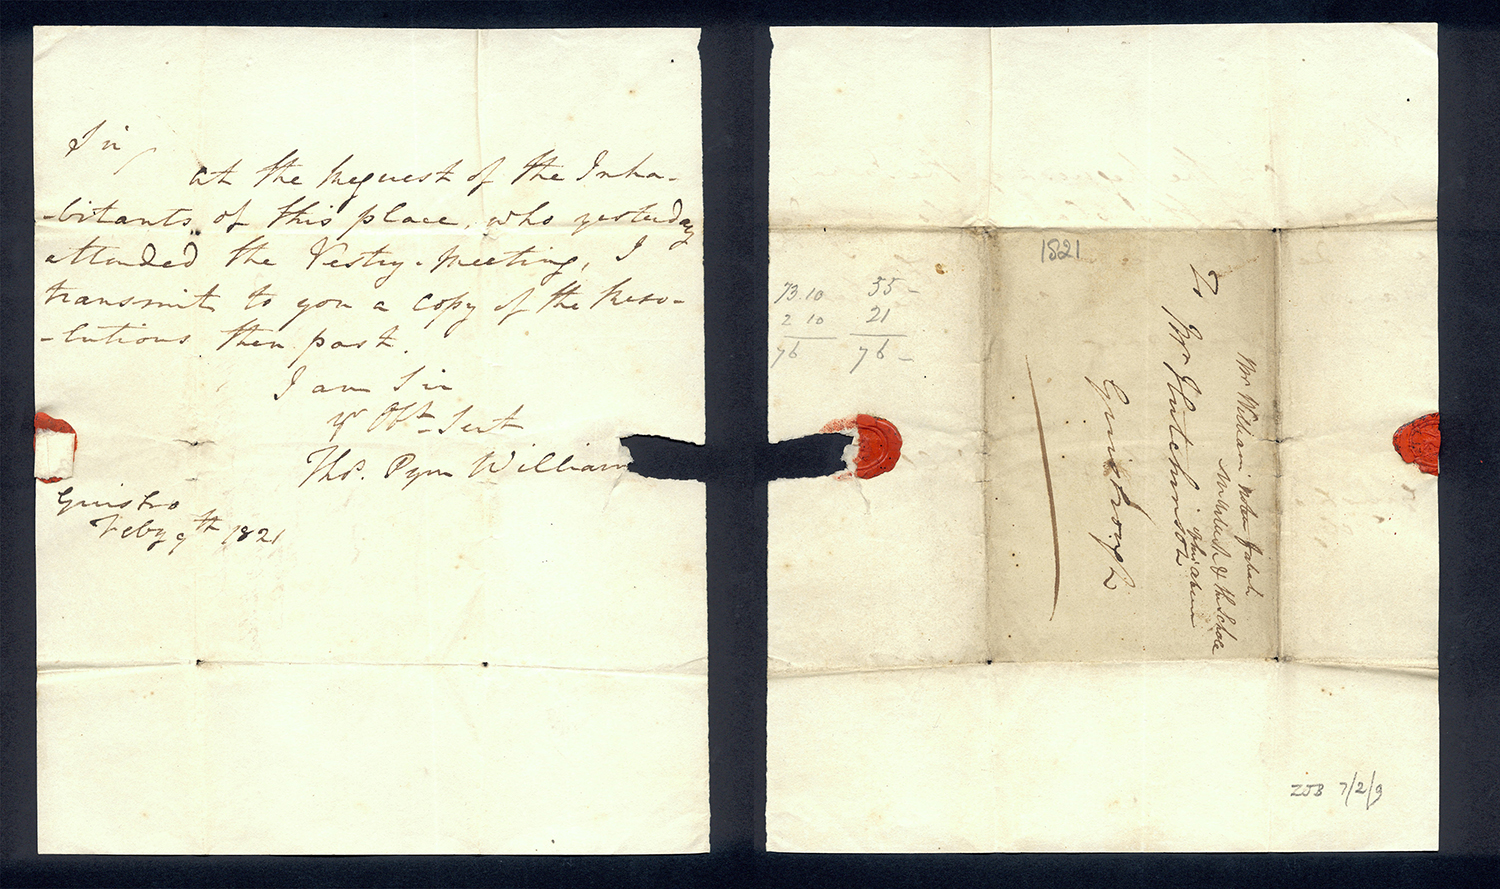 Sir,
at the request of the Inha-
-bitants, of this place, who yesterday
attended the Vestry-meeting, I
transmit to you a copy of the Reso-
-lutions then past.
I am Sir
yr Obt Servt
Thos. Pym William
Guisbro
Feby 9th 1821
1821
73.10 55-
2 10 21
76 76-
To
Mr Hutchinson
Guisbrough
Mr William
& the Schole
ZJB 7/2/9